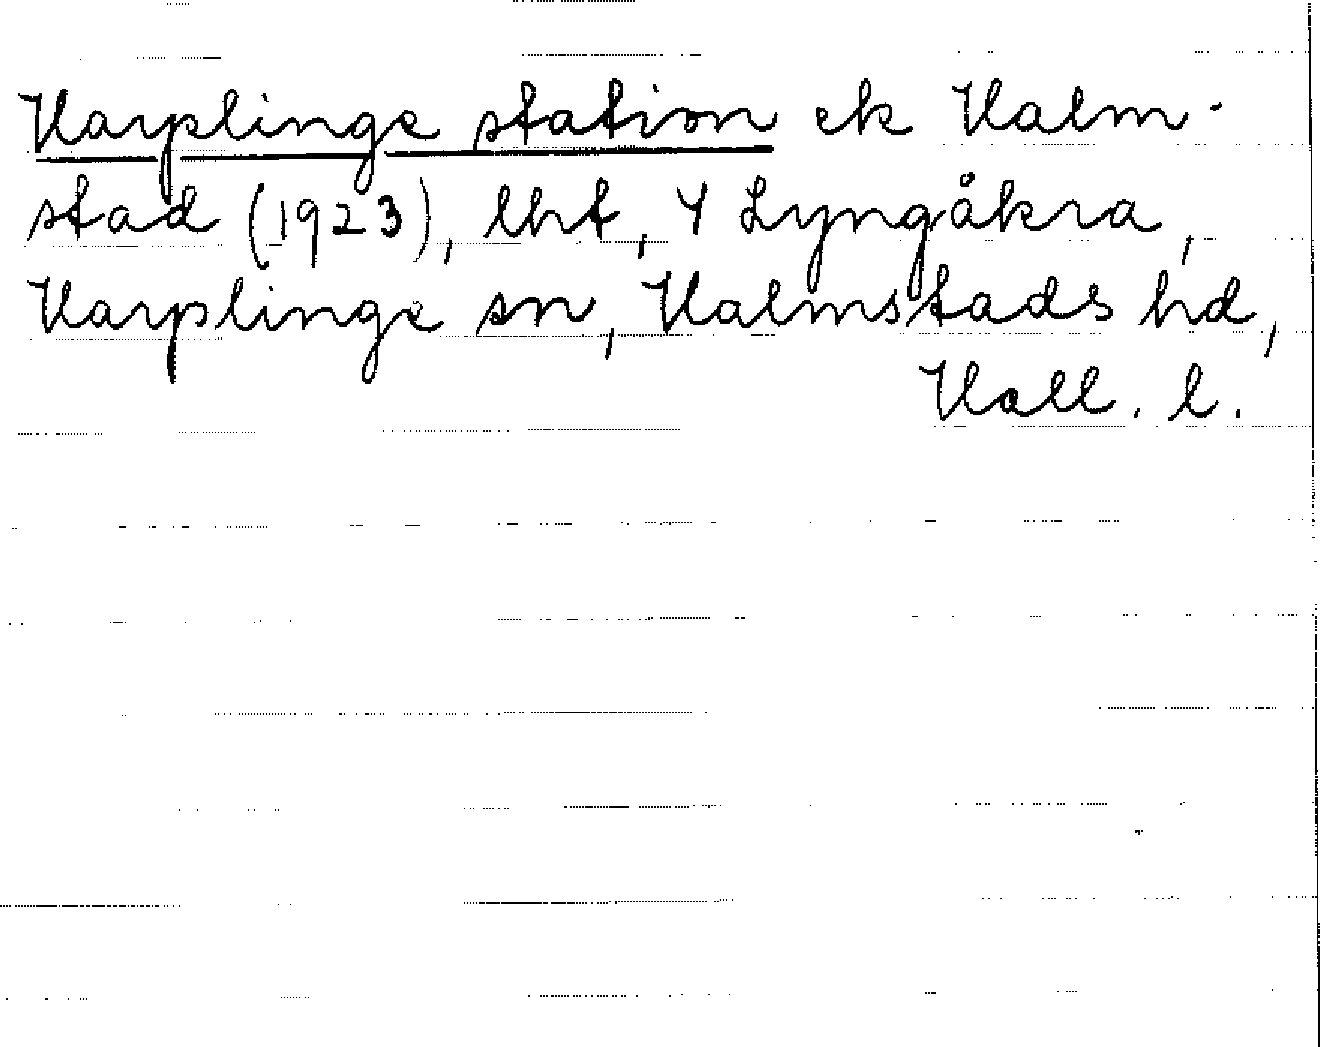 Harplinge station ek Halm-
stad (1923), lht, 4 Lyngåkra,
Harplinge sn, Halmstads hd,
Hall. l.